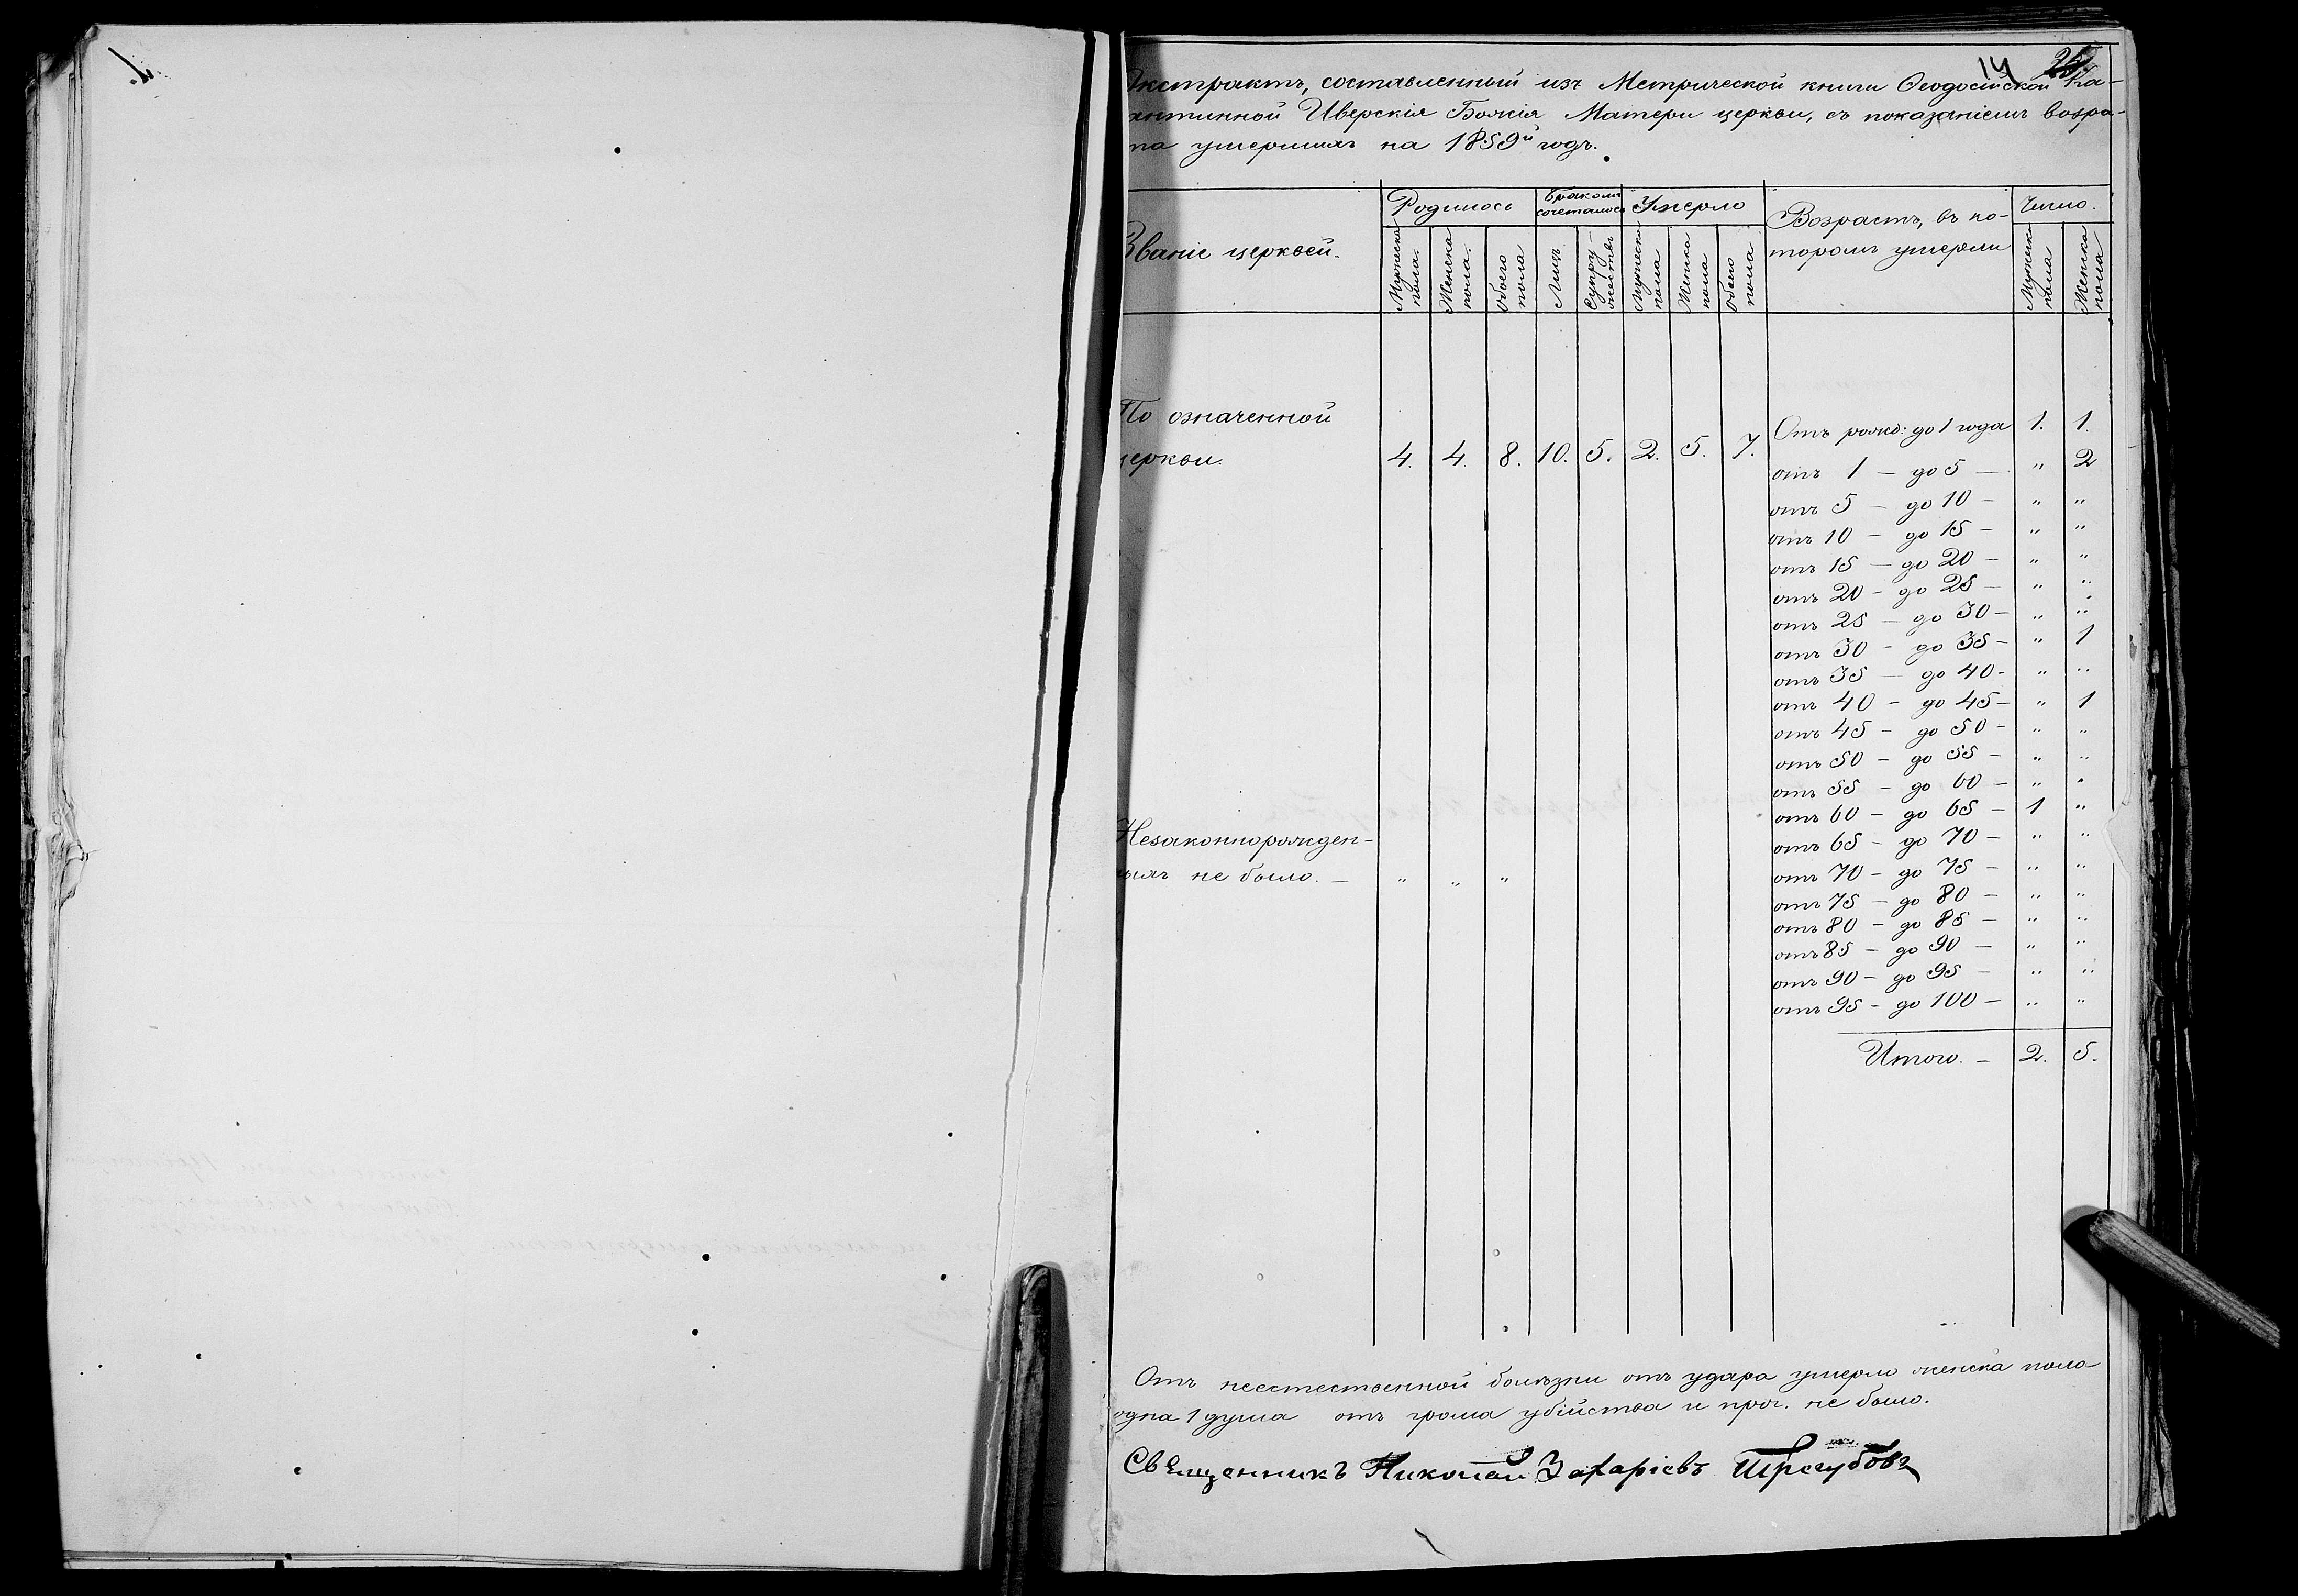 14
Экстрактъ, составленный изъ Метрической книги Ѳеодосійской Ка-
антинной Иверскія Божія Матери церкви, съ показаніемъ возра-
та умершихъ на 1859й годъ.
Званіе церквей.
Родилось
Бракомъ сочеталось
Умерло
Возрастъ, въ ко-
торомъ умерли
Число.
Мужеска пола.
Женска пола.
Обоего пола
Лицъ
Супру-жествъ
Мужеска пола
Женска пола
Обоего пола
Мужеск. пола
Женска пола
По означенной
церкви.
4. 4. 8. 10. 5. 2. 5. 7.
Отъ рожд: до 1 года 1. 1.
отъ 1 — до 5 — " 2
отъ 5 — до 10 — " "
отъ 10 — до 15 — " "
отъ 15 — до 20 — " "
отъ 20 — до 25 — " "
отъ 25 — до 30 — " "
отъ 30 — до 35 — " 1
отъ 35 — до 40 - " "
отъ 40 — до 45 — " 1
отъ 45 — до 50 — " "
отъ 50 — до 55 — " "
отъ 55 — до 60 — " "
отъ 60 — до 65 — 1 "
отъ 65 — до 70 — " "
отъ 70 — до 75 — " "
отъ 75 — до 80 — " "
отъ 80 — до 85 — " "
отъ 85 — до 90 — " "
отъ 90 — до 95 — " "
отъ 95 — до 100 — " "
Незаконнорожден-
ыхъ не было. — " " "
Итого. — 2. 5.
Отъ неестественной болѣзни отъ удара умерло женска пола
одна 1 душа отъ грома убійства и проч. не было.
Священникъ Николай Захаріевъ Трегубовъ